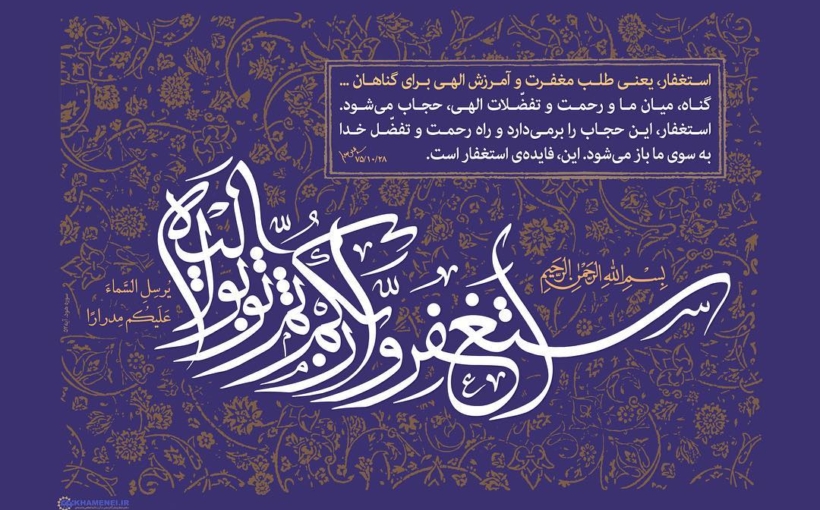 استغفار، یعنی طلب مغفرت و آمرزش الهی برای گناهان ...
گناه، میان ما و رحمت و تفضّلات الهی، حجاب می‌شود.
استغفار، این حجاب را برمی‌دارد و راه رحمت و تفضّل خدا
به سوی ما باز می‌شود. این، فایده‌ی استغفار است.
۷۵/۱۰/۲۸
بِسْمِ اللهِ الرَّحْمٰنِ الرَّحِیْمِ
استغفروا ربّکم ثمّ توبوا الیه
یُرسِلِ السَّماءَ
عَلَیکُم مِدرارًا
KHAMENEI.IR